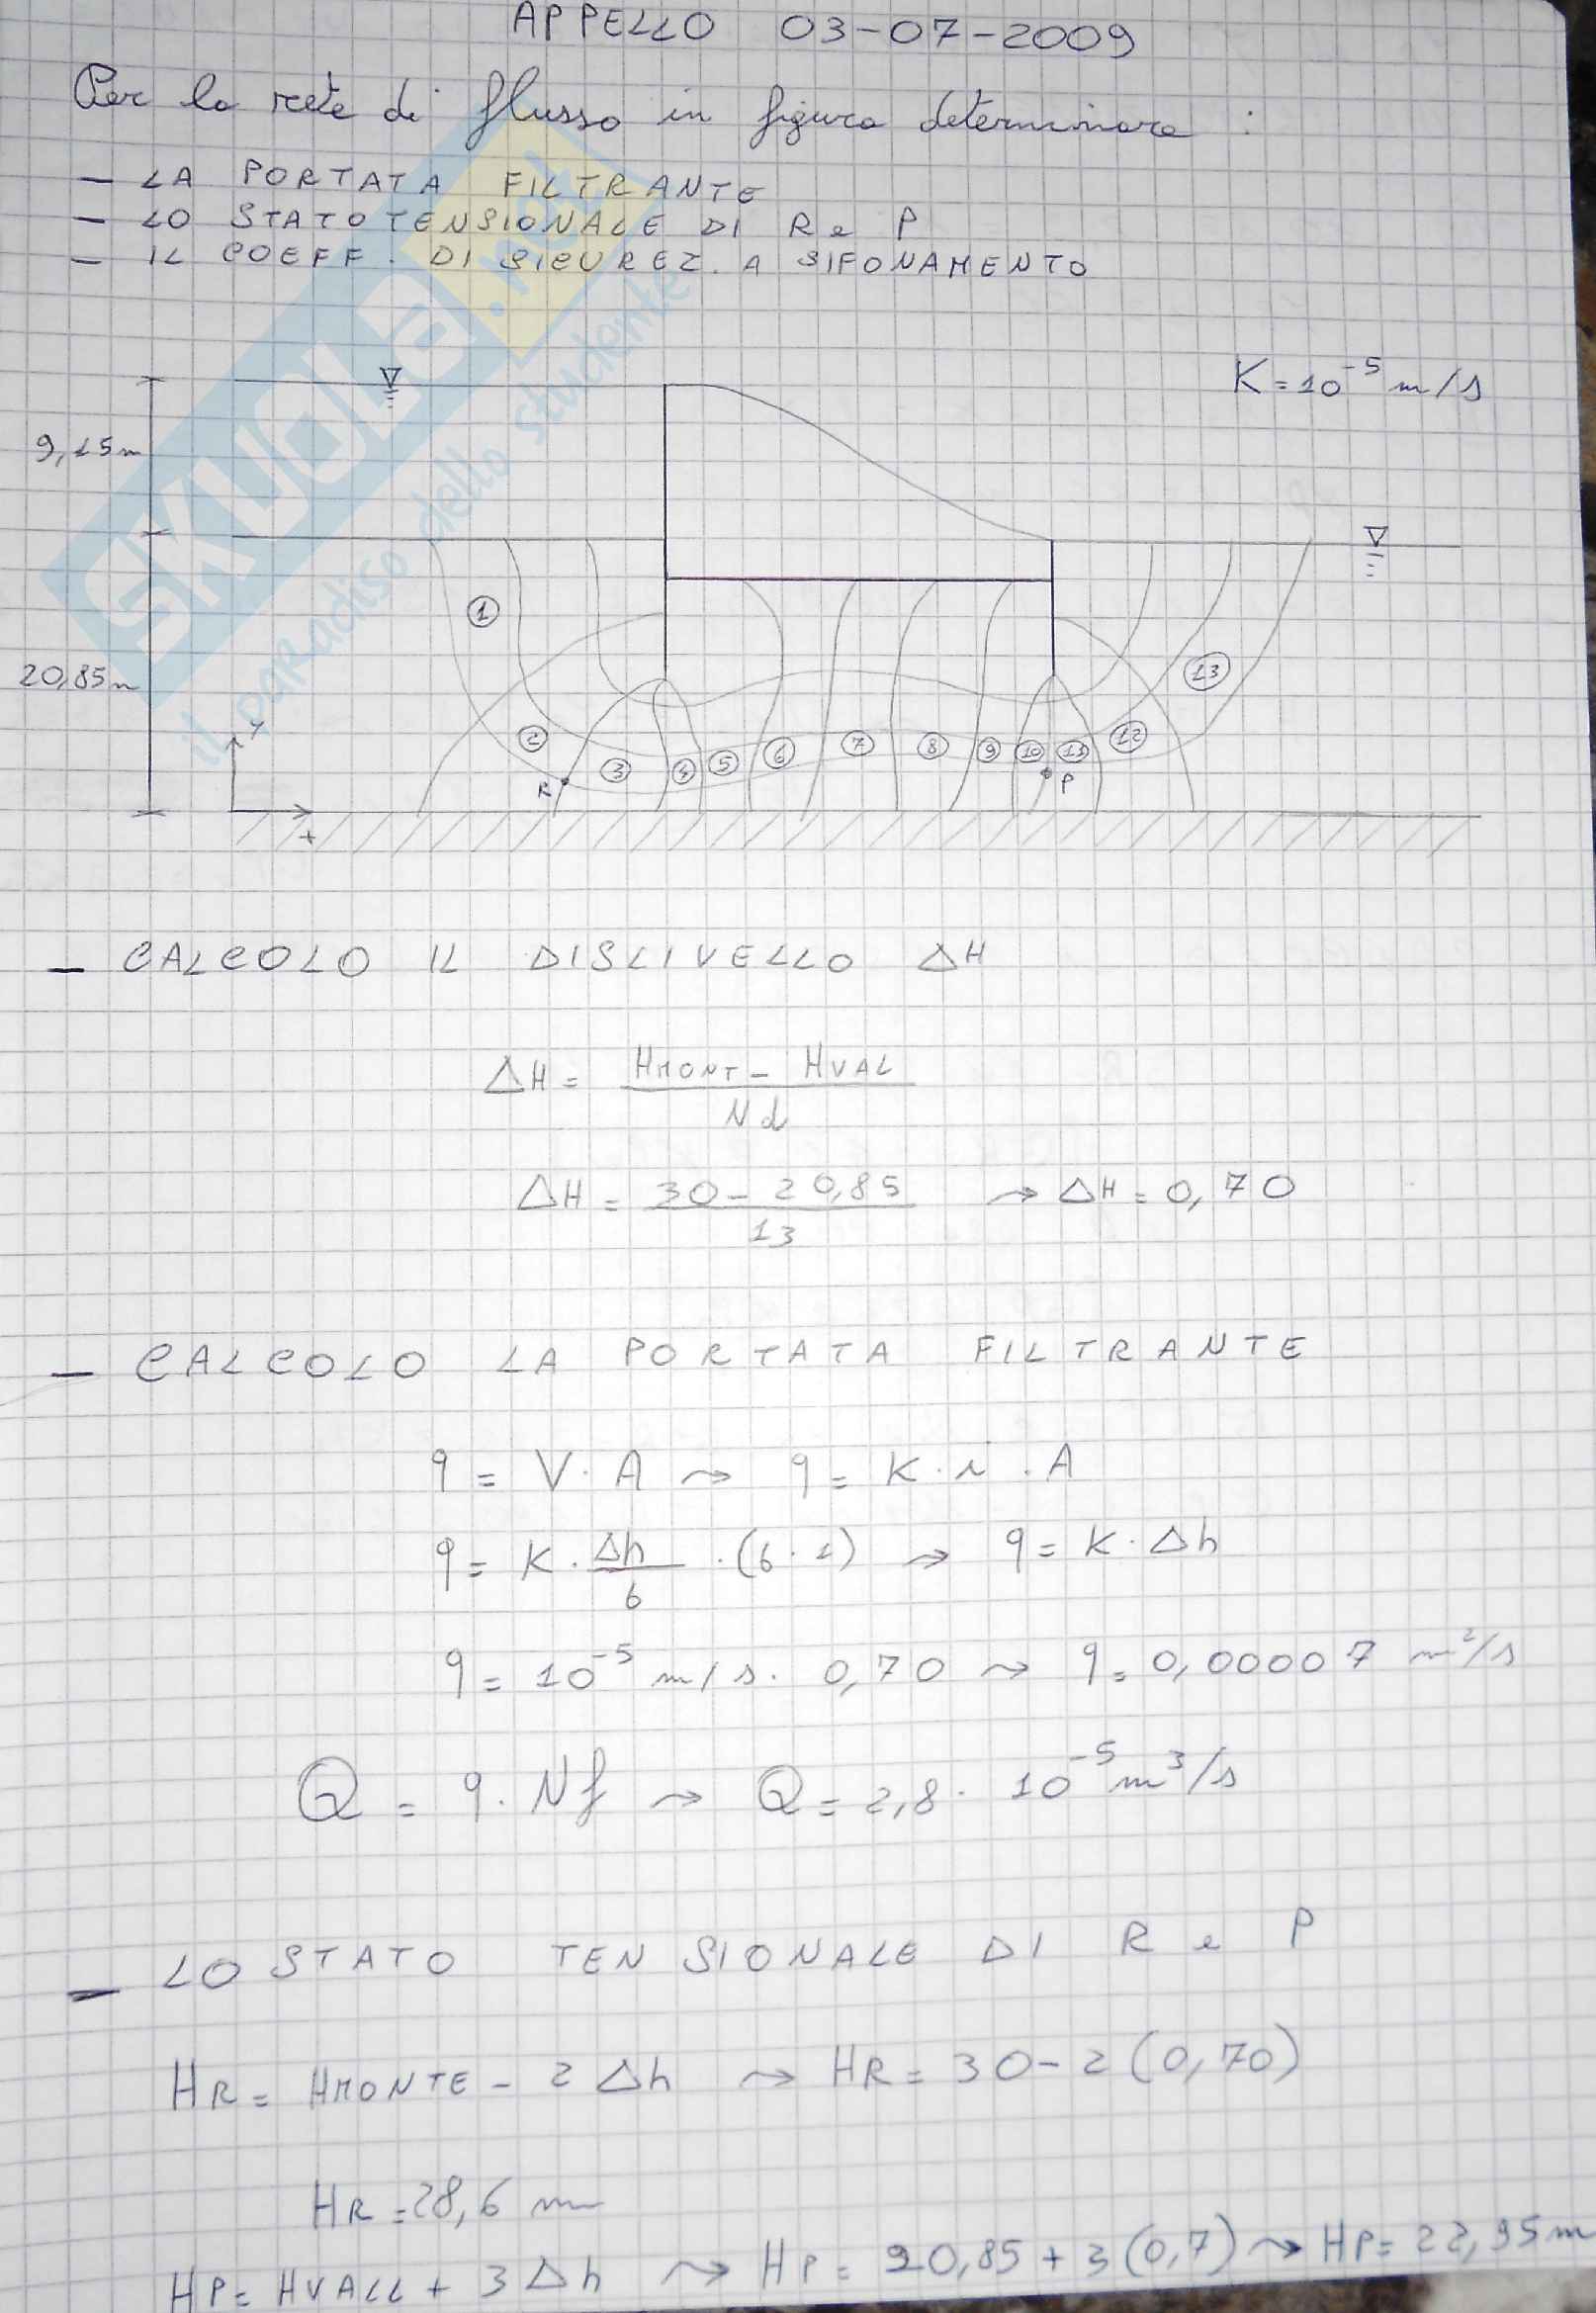 APPELLO 03-07-2009
Per la rete di flusso in figura determinare :
- LA PORTATA FILTRANTE
- LO STATO TENSIONALE DI R e P
- IL COEFF. DI SICUREZ. A SIFONAMENTO
K = 10⁻⁵ m/s
9,15 m
20,85 m
1
13
2
3
4
5
6
7
8
9
10
11
12
R
P
y
SKUOLA.net
il paradiso dello studente
- CALCOLO IL DISLIVELLO ΔH
ΔH = HMONT - HVAL / Nd
ΔH = 30 - 20,85 / 13 → ΔH = 0,70
- CALCOLO LA PORTATA FILTRANTE
q = V · A → q = K · i · A
q = K · Δh / b · (b · 1) → q = K · Δh
q = 10⁻⁵ m/s · 0,70 → q = 0,00007 m²/s
Q = q · Nf → Q = 2,8 · 10⁻⁵ m³/s
- LO STATO TENSIONALE DI R e P
HR = HMONTE - 2 Δh → HR = 30 - 2 (0,70)
HR = 28,6 m
HP = HVALL + 3 Δh → HP = 20,85 + 3 (0,7) → HP = 22,95 m